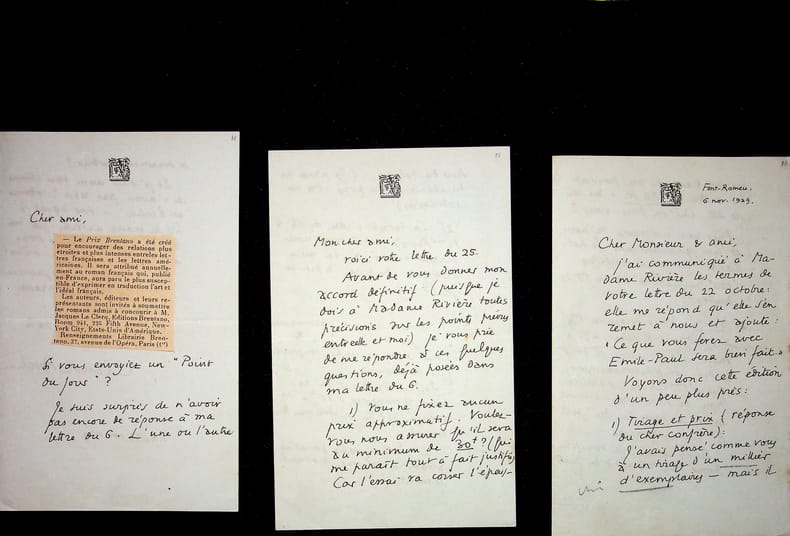 Cher ami,
— Le Prix Brentano a été créé
pour encourager des relations plus
étroites et plus intenses entre les let-
tres françaises et les lettres amé-
ricaines. Il sera attribué annuelle-
ment au roman français qui, publié
en France, aura paru le plus suscep-
tible d'exprimer en traduction l'art et
l'idéal français.
Les auteurs, éditeurs et leurs re-
présentants sont invités à soumettre
les romans admis à concourir à M.
Jacques Le Clercq, Editions Brentano,
Room 941, 225 Fifth Avenue, New-
York City, Etats-Unis d'Amérique.
Renseignements Librairie Bren-
tano, 37, avenue de l'Opéra, Paris (1er)
Si vous envoyiez un "Point
du jour" ?
Je suis surpris de n'avoir
pas encore de réponse à ma
lettre du 6. L'une ou l'autre
Mon cher ami,
voici votre lettre du 25.
Avant de vous donner mon
accord définitif (puisque je
dois à Madame Rivière toutes
précisions sur les points prévus
entre elle et moi) je vous prie
de me répondre à ces quelques
questions, déjà posées dans
ma lettre du 6.
1) Vous ne fixez aucun
prix approximatif. Voulez-
vous nous assurer qu'il sera
au minimum de 30f ? (qui
me paraît tout à fait justifié
car l'essai va corser l'épais-
Font-Romeu,
6 nov. 1929.
Cher Monsieur & ami,
j'ai communiqué à Ma-
dame Rivière les termes de
votre lettre du 22 octobre :
elle me répond qu'elle s'en
remet à nous et ajoute :
"Ce que vous ferez avec
Emile-Paul sera bien fait."
Voyons donc cette édition
d'un peu plus près :
1) Tirage et prix (réponse
du cher confrère) :
J'avais pensé comme vous
à un tirage d'un millier
d'exemplaires — mais il